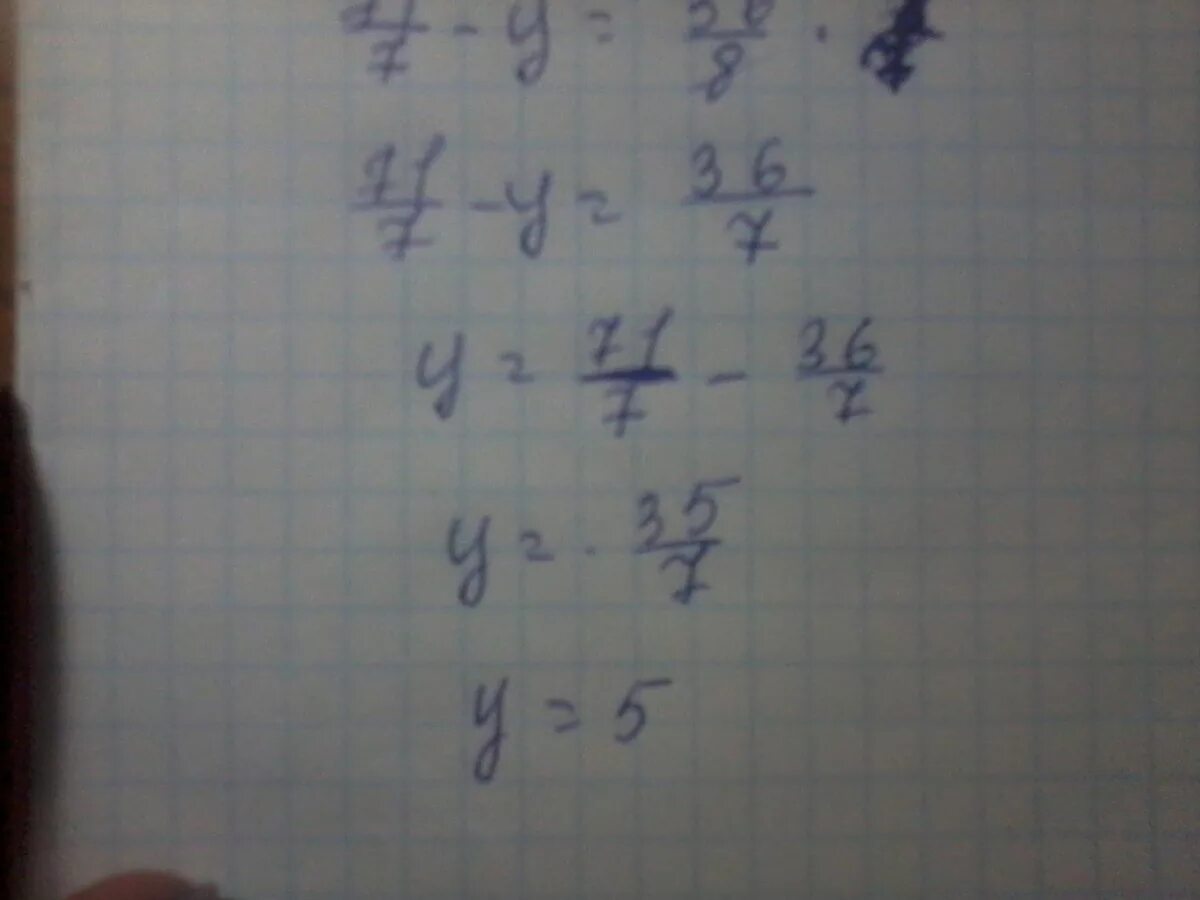 71/7 - y = 36/8 ·
71/7 - y = 36/7
y = 71/7 - 36/7
y = 35/7
y = 5